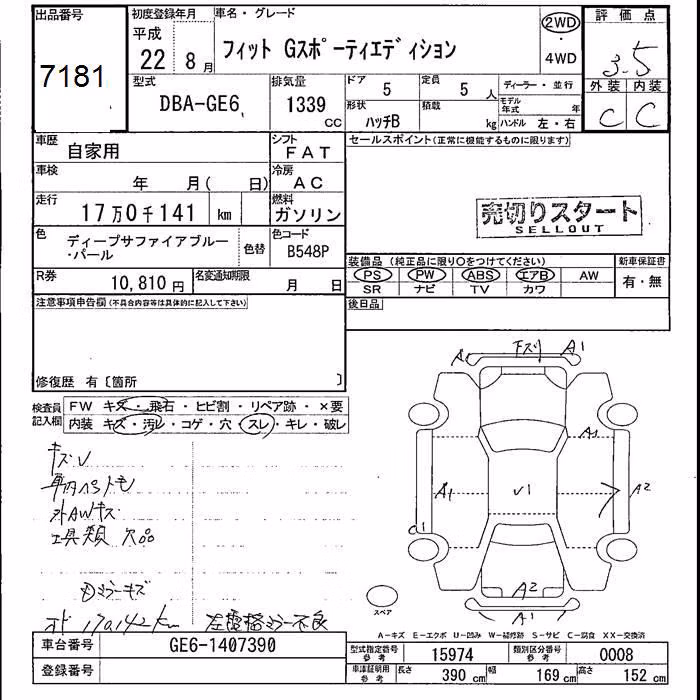 出品番号
7181
初度登録年月
平成
22 8月
車名・グレード
フィット Gスポーティエディション
2WD
・
4WD
評価点
3.5
外装 内装
C C
型式
DBA-GE6
排気量
1339
CC
ドア
5
定員
5 人
形状
ハッチB
積載
kg
ディーラー・並行
モデル年式 年
ハンドル 左・右
車歴
自家用
シフト
FAT
車検
年 月( 日)
冷房
AC
走行
17万0千141 km
燃料
ガソリン
色
ディープサファイアブルー
・パール
色替
色コード
B548P
R券
10,810円
名変通知期限
月 日
セールスポイント(正常に機能するものに限ります)
売切りスタート
SELLOUT
装備品 (純正品に限り○をつけてください)
PS PW ABS エアB AW
SR ナビ TV カワ
新車保証書
有・無
後日品
注意事項申告欄(不具合内容等は具体的に記入して下さい)
修復歴 有〔箇所 〕
検査員
記入欄
FW キズ・飛石・ヒビ割・リペア跡・×要
内装 キズ・汚レ・コゲ・穴・スレ・キレ・破レ
外AWキズ
工具類欠品
ミラーキズ
左電格ミラー不良
A1 下ズリ A1
A1
A1 √1 A2
A2
A1
スペア
A-キズ E-エクボ U-凹み W-補修跡 S-サビ C-腐食 XX-交換済
車台番号
GE6-1407390
登録番号
型式指定番号
参考
15974
類別区分番号
参考
0008
車庫証明用
参考
長さ
390 cm
幅
169 cm
高さ
152 cm